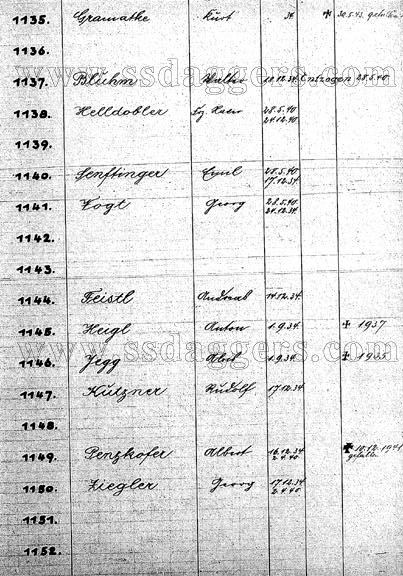 1135. Gramatke Kurt 34 ✠ 30.5.43. gefallen
www.ssdaggers.com
1136.
1137. Bluhm Walter 10.12.34. Entzogen 28.5.40.
1138. Helldobler Fz. Xaver 28.5.40
21.12.40
1139.
1140. Senftinger Emil 28.5.40
17.12.34
1141. Vogt Georg 28.5.40
21.12.34.
1142.
1143.
1144. Feistl Andreas 14.12.34.
1145. Heigl Anton 1.9.34. ✠ 1937
www.ssdaggers.com
1146. Jegg Abel 1.9.34. ✠ 1935
1147. Kutzner Rudolf 17.12.34
1148.
1149. Penzkofer Albert 16.12.34 ✠ 10.12.1941
2.4.40 gefallen
1150. Ziegler Georg 17.12.34
2.4.40
1151.
1152.